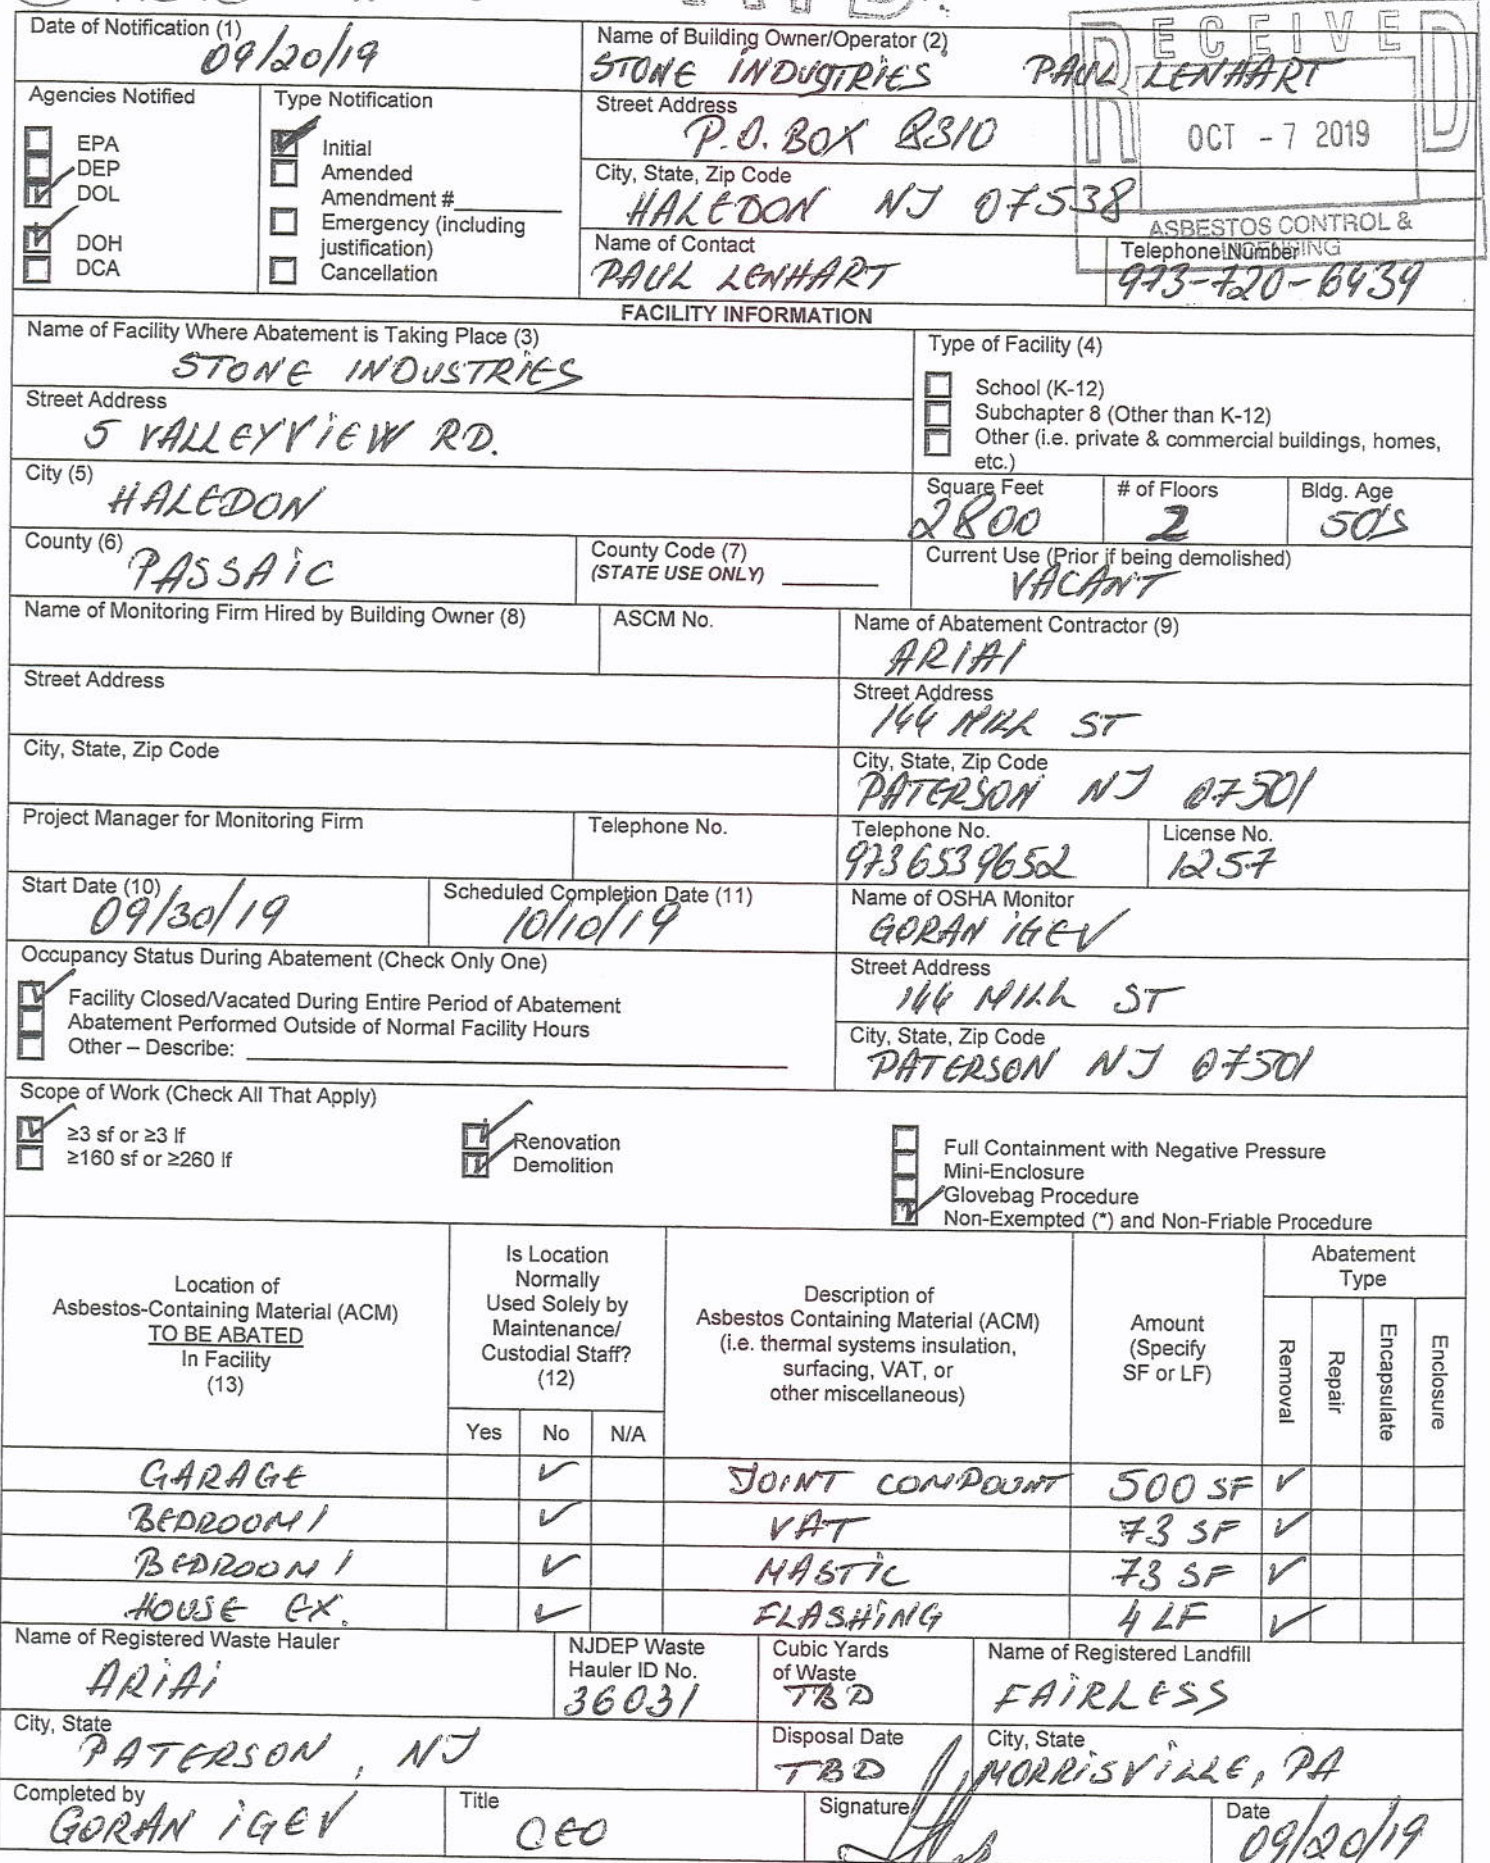 Date of Notification (1)
09/20/19
Name of Building Owner/Operator (2)
STONE INDUSTRIES PAUL LENHART
RECEIVED
OCT - 7 2019
ASBESTOS CONTROL &
Agencies Notified
EPA
DEP
DOL
DOH
DCA
Type Notification
Initial
Amended
Amendment #
Emergency (including
justification)
Cancellation
Street Address
P.O. BOX 8310
City, State, Zip Code
HALEDON NJ 07538
Name of Contact
PAUL LENHART
Telephone Number
973-720-6439
FACILITY INFORMATION
Name of Facility Where Abatement is Taking Place (3)
STONE INDUSTRIES
Street Address
5 VALLEYVIEW RD.
City (5)
HALEDON
Type of Facility (4)
School (K-12)
Subchapter 8 (Other than K-12)
Other (i.e. private & commercial buildings, homes,
etc.)
Square Feet
2800
# of Floors
2
Bldg. Age
50'S
County (6)
PASSAIC
County Code (7)
(STATE USE ONLY)
Current Use (Prior if being demolished)
VACANT
Name of Monitoring Firm Hired by Building Owner (8)
ASCM No.
Name of Abatement Contractor (9)
ARIAI
Street Address
Street Address
144 MILL ST
City, State, Zip Code
City, State, Zip Code
PATERSON NJ 07501
Project Manager for Monitoring Firm
Telephone No.
Telephone No.
9736539652
License No.
1257
Start Date (10)
09/30/19
Scheduled Completion Date (11)
10/10/19
Name of OSHA Monitor
GORAN IGEV
Occupancy Status During Abatement (Check Only One)
Facility Closed/Vacated During Entire Period of Abatement
Abatement Performed Outside of Normal Facility Hours
Other – Describe:
Street Address
144 MILL ST
City, State, Zip Code
PATERSON NJ 07501
Scope of Work (Check All That Apply)
≥3 sf or ≥3 lf
≥160 sf or ≥260 lf
Renovation
Demolition
Full Containment with Negative Pressure
Mini-Enclosure
Glovebag Procedure
Non-Exempted (*) and Non-Friable Procedure
Location of
Asbestos-Containing Material (ACM)
TO BE ABATED
In Facility
(13)
Is Location
Normally
Used Solely by
Maintenance/
Custodial Staff?
(12)
Yes No N/A
Description of
Asbestos Containing Material (ACM)
(i.e. thermal systems insulation,
surfacing, VAT, or
other miscellaneous)
Amount
(Specify
SF or LF)
Abatement
Type
Removal
Repair
Encapsulate
Enclosure
GARAGE ✓ JOINT COMPOUNT 500 SF ✓
BEDROOM 1 ✓ VAT 73 SF ✓
BEDROOM 1 ✓ MASTIC 73 SF ✓
HOUSE EX. ✓ FLASHING 4 LF ✓
Name of Registered Waste Hauler
ARIAI
NJDEP Waste
Hauler ID No.
36031
Cubic Yards
of Waste
TBD
Name of Registered Landfill
FAIRLESS
City, State
PATERSON, NJ
Disposal Date
TBD
City, State
MORRISVILLE, PA
Completed by
GORAN IGEV
Title
CEO
Signature
Date
09/20/19